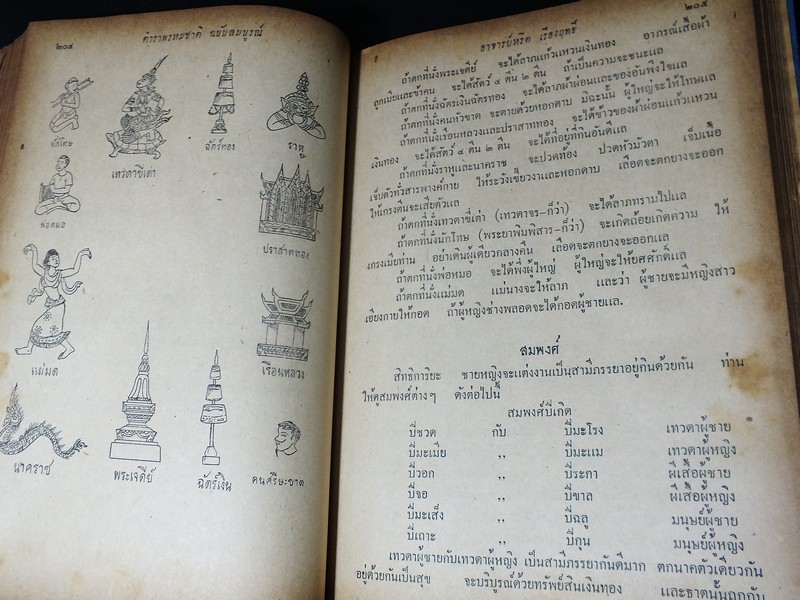 ๒๐๔
ตำราพรหมชาติ ฉบับสมบูรณ์
นักโทษ
เทวดาขี่เต่า
ฉัตร์ทอง
ราหู
พ่อหมอ
ปราสาททอง
แม่มด
เรือนหลวง
นาคราช
พระเจดีย์
ฉัตร์เงิน
คนศีร์ษะขาด
อาจารย์หรีด เรืองฤทธิ์
๒๐๕
ถ้าตกที่นั่งพระเจดีย์ จะได้ลาภแก้วแหวนเงินทอง อาภรณ์เสื้อผ้า
ลูกเมียและข้าคน จะได้สัตว์ ๔ ตีน ๒ ตีน ถ้าเป็นความจะชนะแล
ถ้าตกที่นั่งฉัตร์เงินฉัตร์ทอง จะได้ลาภผ้าผ่อนและของอันพึงใจแล
ถ้าตกที่นั่งคนหัวขาด จะตายด้วยหอกดาบ มิฉะนั้น ผู้ใหญ่จะให้โทษแล
ถ้าตกที่นั่งเรือนหลวงและปราสาททอง จะได้ข้าวของผ้าผ่อนแก้วแหวน
เงินทอง จะได้สัตว์ ๔ ตีน ๒ ตีน จะได้ที่อยู่ที่กินอันดีแล
ถ้าตกที่นั่งราหูและนาคราช จะปวดท้อง ปวดหัวมัวตา เจ็บเนื้อ
เจ็บตัวทั่วสารพางค์กาย ให้ระวังเขี้ยวงาและหอกดาบ เลือดจะตกยางจะออก
ให้นกรงตีนจะเสียตัวแล
ถ้าตกที่นั่งเทวดาขี่เต่า (เทวดาจร-ก็ว่า) จะได้ลาภทรามไปแล
ถ้าตกที่นั่งนักโทษ (พระยาพิมพิสาร-ก็ว่า) จะเกิดถ้อยเกิดความ ให้
เกรงเมียท่าน อย่าเดินผู้เดียวกลางคืน เลือดจะตกยางจะออกแล
ถ้าตกที่นั่งพ่อหมอ จะได้พึ่งผู้ใหญ่ ผู้ใหญ่จะให้ยศศักดิ์แล
ถ้าตกที่นั่งแม่มด แม่นางจะให้ลาภ และว่า ผู้ชายจะมีหญิงสาว
เอียงกายให้กอด ถ้าผู้หญิงช่างพลอดจะได้กอดผู้ชายแล.
สมพงศ์
สิทธิการิยะ ชายหญิงจะแต่งงานเป็นสามีภรรยาอยู่กินด้วยกัน ท่าน
ให้ดูสมพงศ์ต่างๆ ดังต่อไปนี้
สมพงศ์ปีเกิด
ปีชวด กับ ปีมะโรง เทวดาผู้ชาย
ปีมะเมีย ,, ปีมะแม เทวดาผู้หญิง
ปีวอก ,, ปีระกา ผีเสื้อผู้ชาย
ปีจอ ,, ปีขาล ผีเสื้อผู้หญิง
ปีมะเส็ง ,, ปีฉลู มนุษย์ผู้ชาย
ปีเถาะ ,, ปีกุน มนุษย์ผู้หญิง
เทวดาผู้ชายกับเทวดาผู้หญิง เป็นสามีภรรยากันดีมาก ตกนาคตัวเดียวกัน
อยู่ด้วยกันเป็นสุข จะบริบูรณ์ด้วยทรัพย์สินเงินทอง และธาตุนั้นถูกกัน